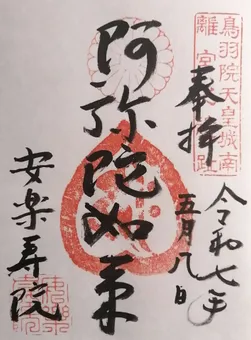 鳥羽院天皇城南
離宮之跡
奉拝
令和七年
五月八日
阿弥陀如来
安楽寿院
安楽
寿院